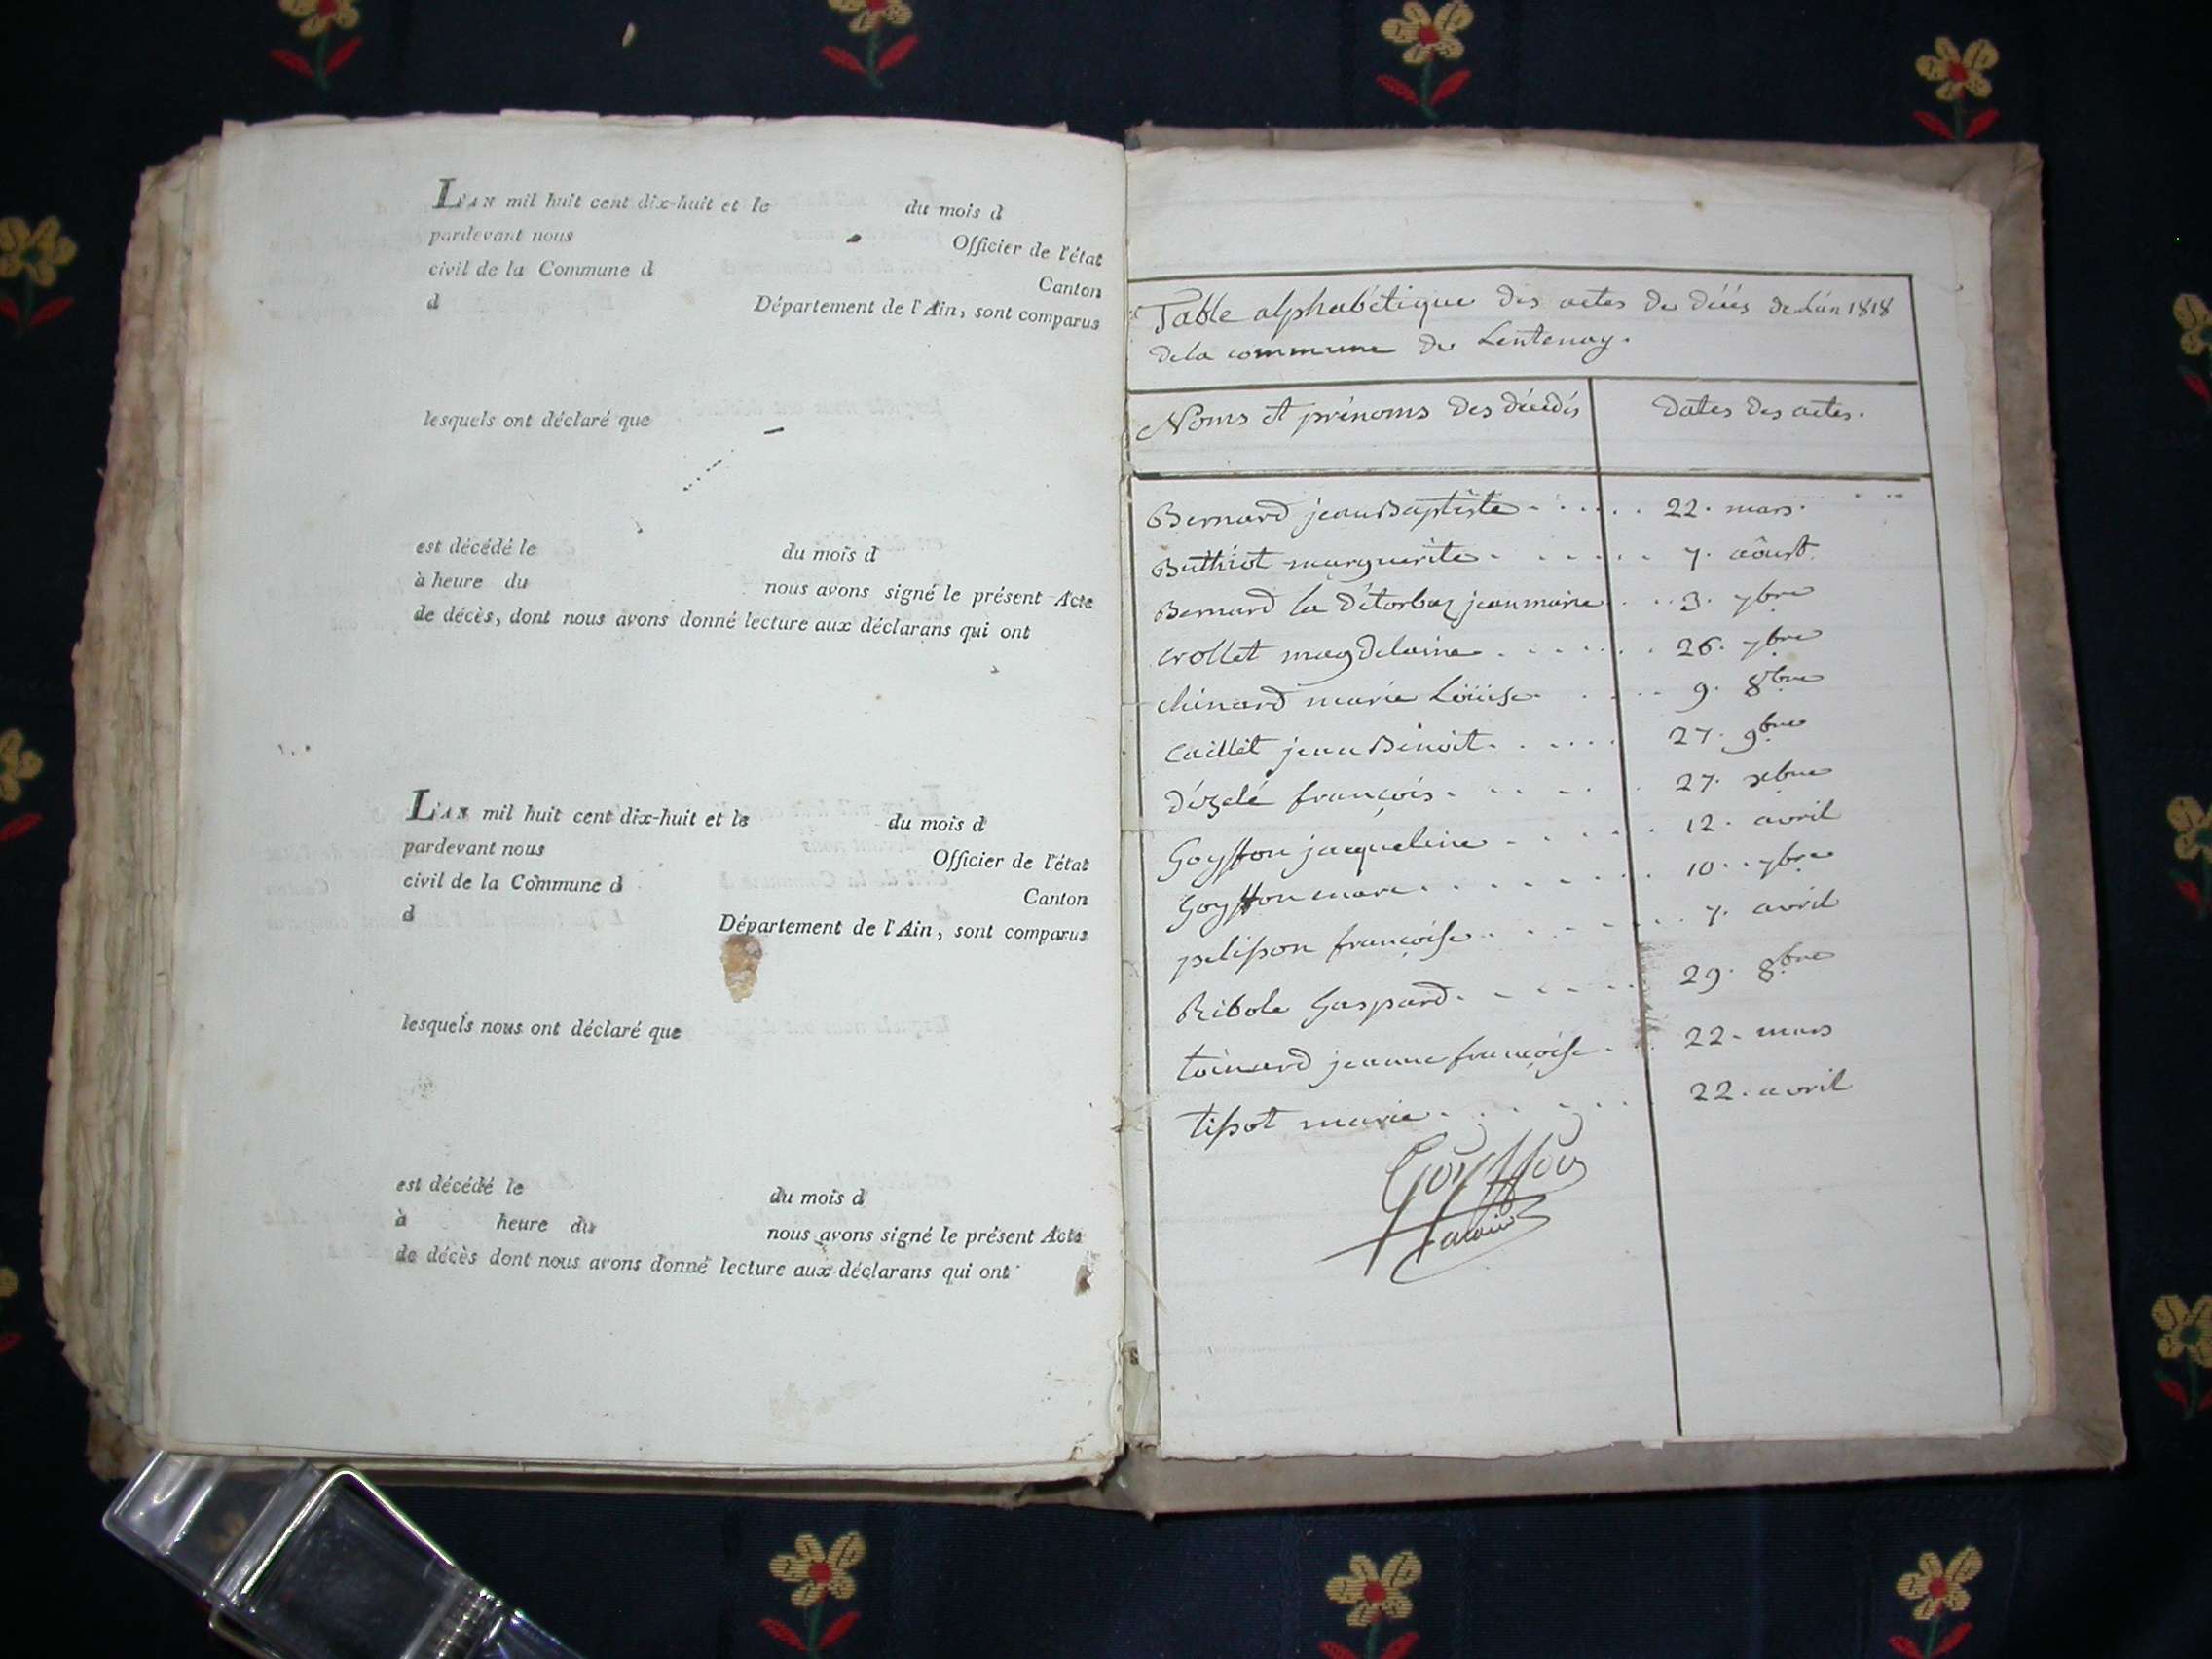 L'AN mil huit cent dix-huit et le du mois d
pardevant nous Officier de l'état
civil de la Commune d Canton
d Département de l'Ain, sont comparus
lesquels ont déclaré que
est décédé le du mois d
à heure du nous avons signé le présent Acte
de décès, dont nous avons donné lecture aux déclarans qui ont
L'AN mil huit cent dix-huit et le du mois d
pardevant nous Officier de l'état
civil de la Commune d Canton
d Département de l'Ain, sont comparus
lesquels nous ont déclaré que
est décédé le du mois d
à heure du nous avons signé le présent Acte
de décès dont nous avons donné lecture aux déclarans qui ont
Table alphabétique des actes de décés de l'an 1818
de la commune de Lentenay.
Noms et prénoms des décédés dates des actes.
Bernard jean Baptiste 22. mars.
Buthiot marguerite 7. aôust.
Bernard la détorbaz jeanmarie 3. 7bre
Crollet magdelaine 26. 7bre
chénard marie Loüise 9. 8bre
Caillet jean Benoit 27. 9bre
dézelé françois 27. xbre
Goyffon jacqueline 12. avril
Goyffon marc 10. 7bre
pelisson françoise 7. avril
Ribole Gaspard 29. 8bre
toinard jeanne françoise 22. mars
tissot marie 22. avril
Goyffon